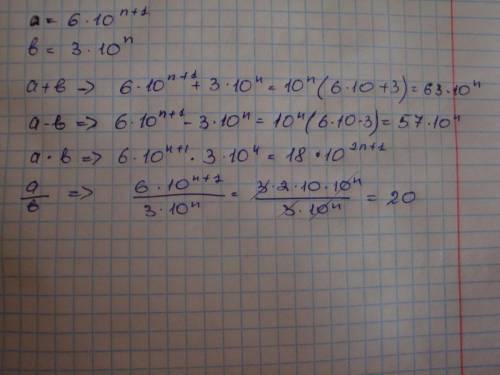 a = 6·10^{n+1}
b = 3·10^n
a+b => 6·10^{n+1} + 3·10^n = 10^n(6·10+3) = 63·10^n
a-b => 6·10^{n+1} - 3·10^n = 10^n(6·10-3) = 57·10^n
a·b => 6·10^{n+1} · 3·10^n = 18·10^{2n+1}
a/b => (6·10^{n+1})/(3·10^n) = (3·2·10·10^n)/(3·10^n) = 20